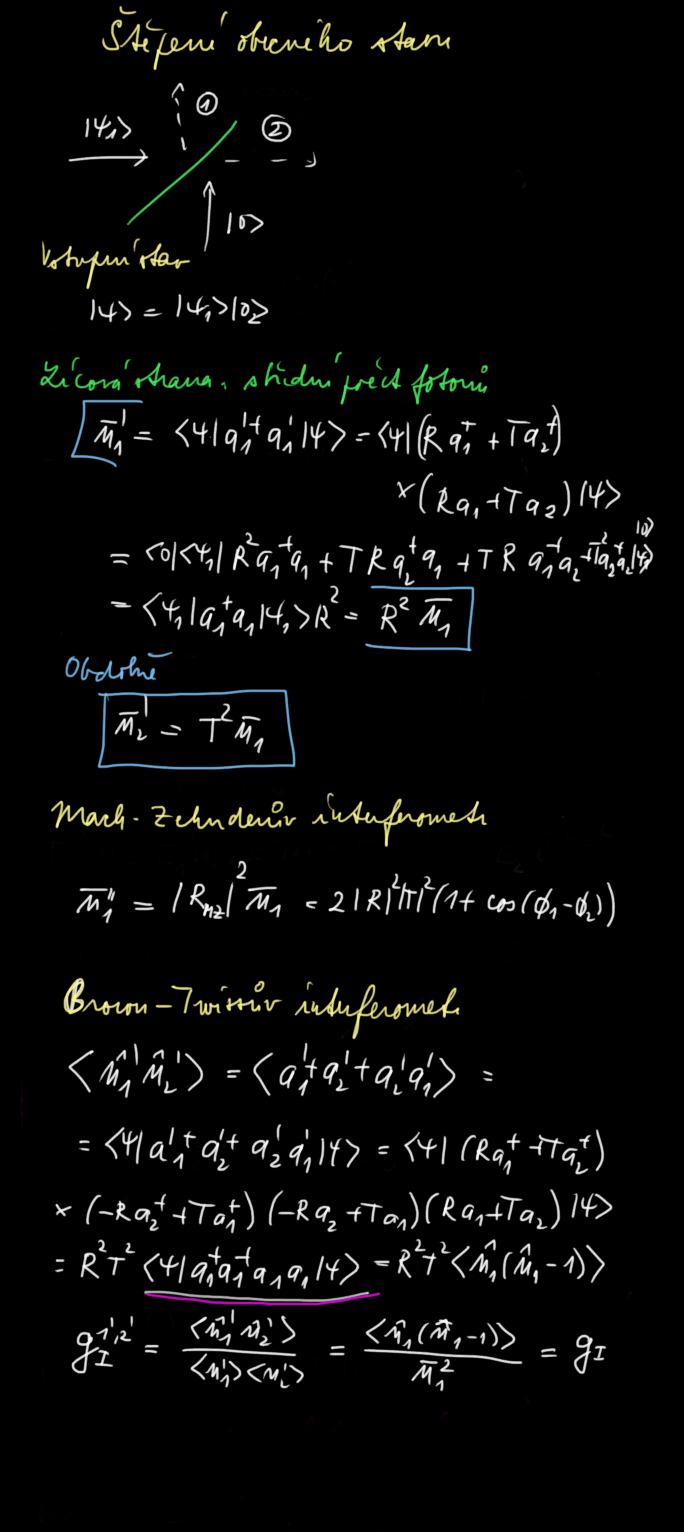 Štěpení obecného stavu
①
|ψ₁⟩ ②
|0⟩
Vstupní stav
|ψ⟩ = |ψ₁⟩|0₂⟩
Lícová strana, střední počet fotonů
n̄₁' = ⟨ψ|a₁'⁺a₁'|ψ⟩ = ⟨ψ|(Ra₁⁺ + Ta₂⁺)
×(Ra₁+Ta₂)|ψ⟩
= ⟨0|⟨ψ₁|R²a₁⁺a₁ + TRa₂⁺a₁ + TRa₁⁺a₂ + T²a₂⁺a₂|ψ₁⟩|0⟩
= ⟨ψ₁|a₁⁺a₁|ψ₁⟩R² = R² n̄₁
Obdobně
n̄₂' = T² n̄₁
Mach-Zehnderův interferometr
n̄₁'' = |R_MZ|² n̄₁ = 2|R|²|T|²(1+ cos(ϕ₁-ϕ₂))
Brown-Twissův interferometr
⟨n̂₁'n̂₂'⟩ = ⟨a₁'⁺a₂'⁺a₂'a₁'⟩ =
= ⟨ψ|a₁'⁺a₂'⁺a₂'a₁'|ψ⟩ = ⟨ψ|(Ra₁⁺+Ta₂⁺)
×(-Ra₂⁺+Ta₁⁺)(-Ra₂+Ta₁)(Ra₁+Ta₂)|ψ⟩
= R²T²⟨ψ|a₁⁺a₁⁺a₁a₁|ψ⟩ = R²T²⟨n̂₁(n̂₁-1)⟩
g_I^{1',2'} = ⟨n̂₁'n̂₂'⟩/⟨n₁'⟩⟨n₂'⟩ = ⟨n̂₁(n̂₁-1)⟩/n̄₁² = g_I